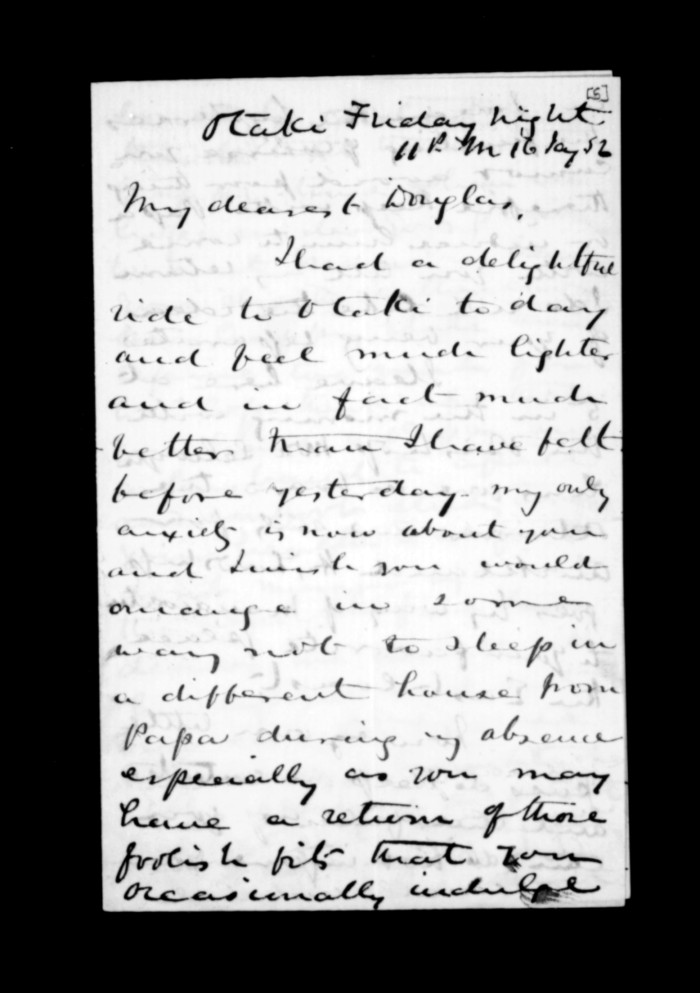 [5]
Otaki Friday night
11 P.M 16 Jay 52
My dearest Douglas,
I had a delightful
ride to Otaki to day
and feel much lighter
and in fact much
better than I have felt
before yesterday. my only
anxiety is now about you
and I wish you would
arrange in some
way not to sleep in
a different house from
Papa during my absence
especially as you may
have a return of those
foolish fits that you
occasionally indulge